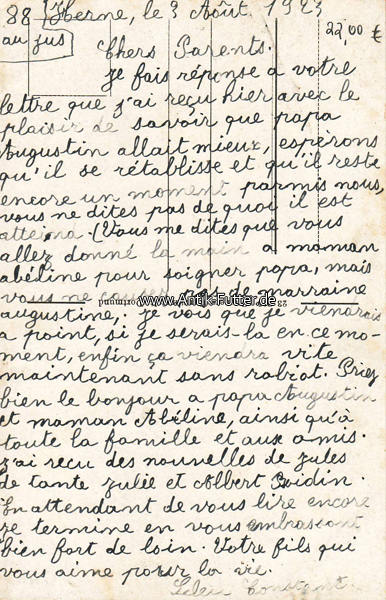 88 Herne, le 3 Août 1923
au jus
22,00 €
Chers Parents.
Je fais réponse a votre
lettre que j'ai reçu hier avec le
plaisir de savoir que papa
Augustin allait mieux, espèrons
qu'il se rétablisse et qu'il reste
encore un moment parmis nous,
vous ne dites pas de quoi il est
atteind. (Vous me dites que vous
allez donné la main a maman
abéline pour soigner papa, mais
vous ne causer pas de marraine
www.Antik-Futter.de
augustine, je vois que je viendrais
a point, si je serais-la en ce mo-
ment, enfin ça viendra vite
maintenant sans rabiot. Priez
bien le bonjour a papa Augustin
et maman Abéline, ainsi qu'à
toute la famille et aux amis.
J'ai reçu des nouvelles de jules
de tante julie et Albert
En attendant de vous lire encore
je termine en vous embrassant
bien fort de loin. Votre fils qui
vous aime pour la vie.
Constant.